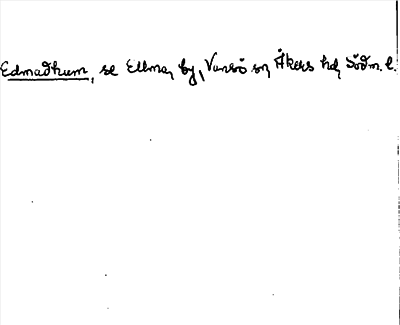 Edmaðhum, se Ellma, by, Vansö sn, Åkers hd, Södm. l.